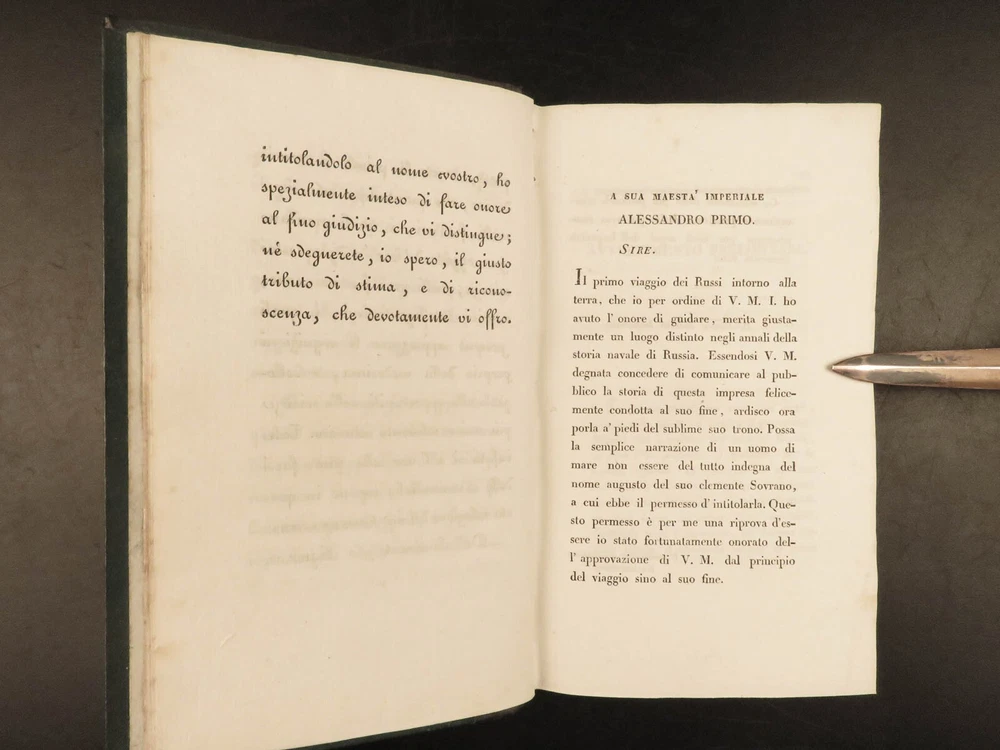 intitolandolo al nome vostro, ho
spezialmente inteso di fare onore
al fino giudizio, che vi distingue;
né sdegnerete, io spero, il giusto
tributo di stima, e di ricono-
scenza, che devotamente vi offro.
A SUA MAESTA' IMPERIALE
ALESSANDRO PRIMO.
SIRE.
Il primo viaggio dei Russi intorno alla
terra, che io per ordine di V. M. I. ho
avuto l' onore di guidare, merita giusta-
mente un luogo distinto negli annali della
storia navale di Russia. Essendosi V. M.
degnata concedere di comunicare al pub-
blico la storia di questa impresa felice-
mente condotta al suo fine, ardisco ora
porla a' piedi del sublime suo trono. Possa
la semplice narrazione di un uomo di
mare nòn essere del tutto indegna del
nome augusto del suo clemente Sovrano,
a cui ebbe il permesso d' intitolarla. Que-
sto permesso è per me una riprova d'es-
sere io stato fortunatamente onorato del-
l' approvazione di V. M. dal principio
del viaggio sino al suo fine.